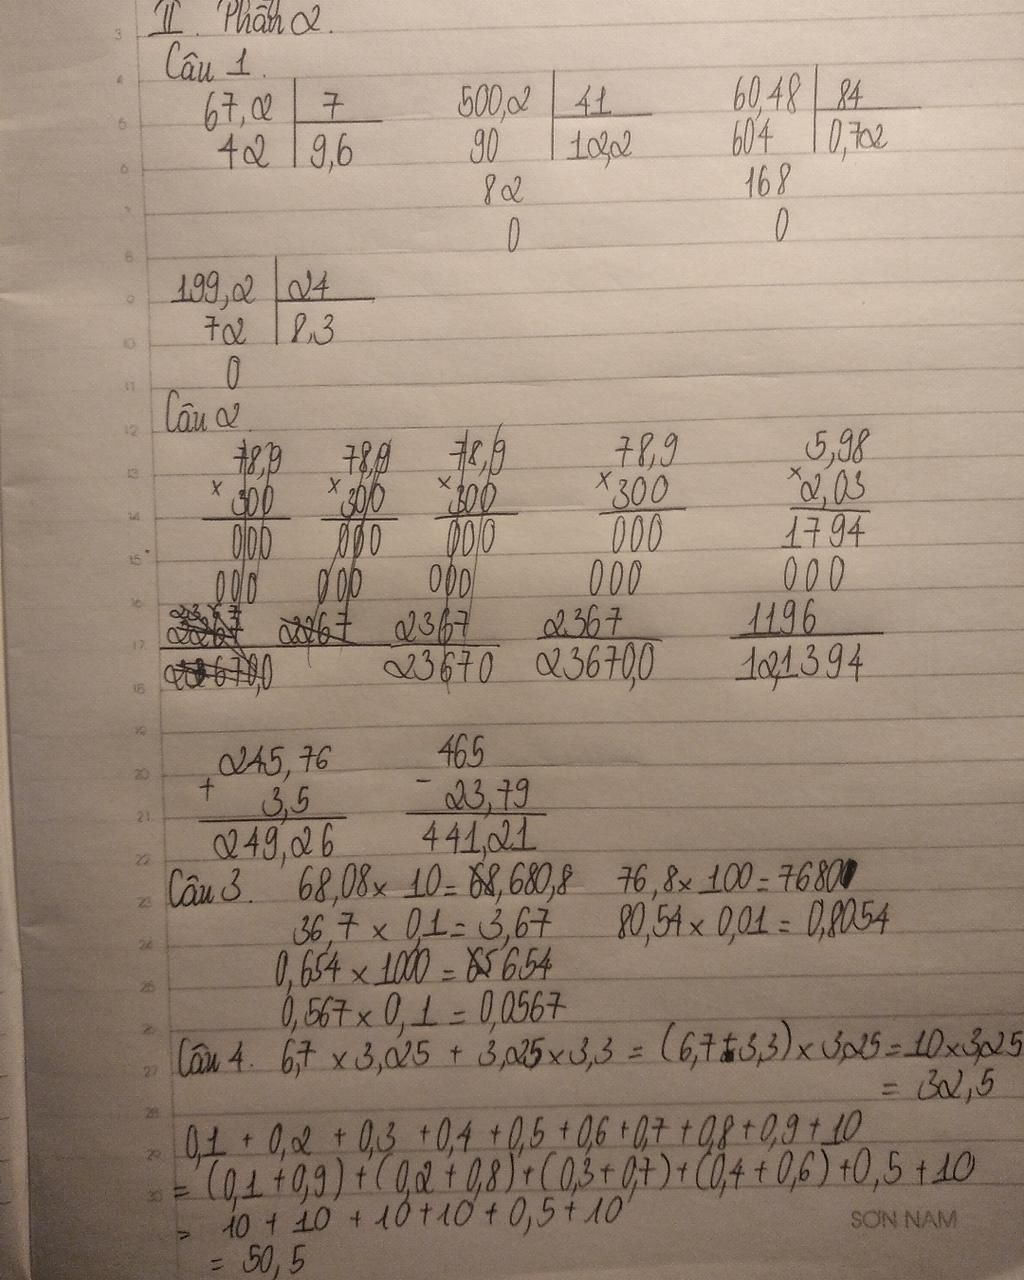 II. Phần 2.
Câu 1.
67,2 | 7 500,2 | 41 60,48 | 84
42 | 9,6 90 | 12,2 604 | 0,72
82 168
0 0
199,2 | 24
72 | 8,3
0
Câu 2
78,9 78,9 78,9 78,9 5,98
× 300 × 300 × 300 × 300 × 2,03
000 000 000 000 1794
000 000 000 000 000
2267 2367 2367 1196
23670 23670,0 12,1394
245,76 465
+ 3,5 - 23,79
249,26 441,21
Câu 3. 68,08 × 10 = 680,8 76,8 × 100 = 7680
36,7 × 0,1 = 3,67 80,54 × 0,01 = 0,8054
0,654 × 1000 = 654
0,567 × 0,1 = 0,0567
Câu 4. 6,7 × 3,25 + 3,25 × 3,3 = (6,7 + 3,3) × 3,25 = 10 × 3,25
= 32,5
0,1 + 0,2 + 0,3 + 0,4 + 0,5 + 0,6 + 0,7 + 0,8 + 0,9 + 10
= (0,1 + 0,9) + (0,2 + 0,8) + (0,3 + 0,7) + (0,4 + 0,6) + 0,5 + 10
= 10 + 10 + 10 + 10 + 0,5 + 10
= 50,5
SƠN NAM